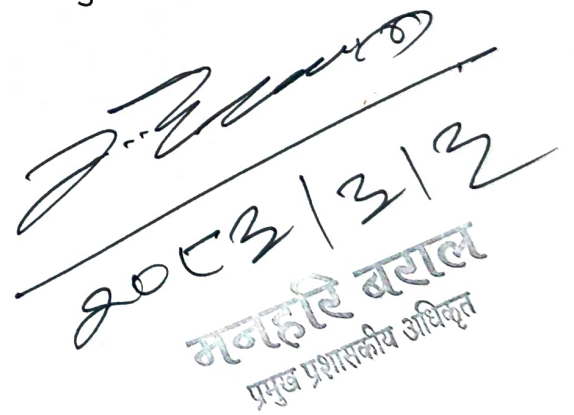 २०८३/३/३
मनहरि बराल
प्रमुख प्रशासकीय अधिकृत